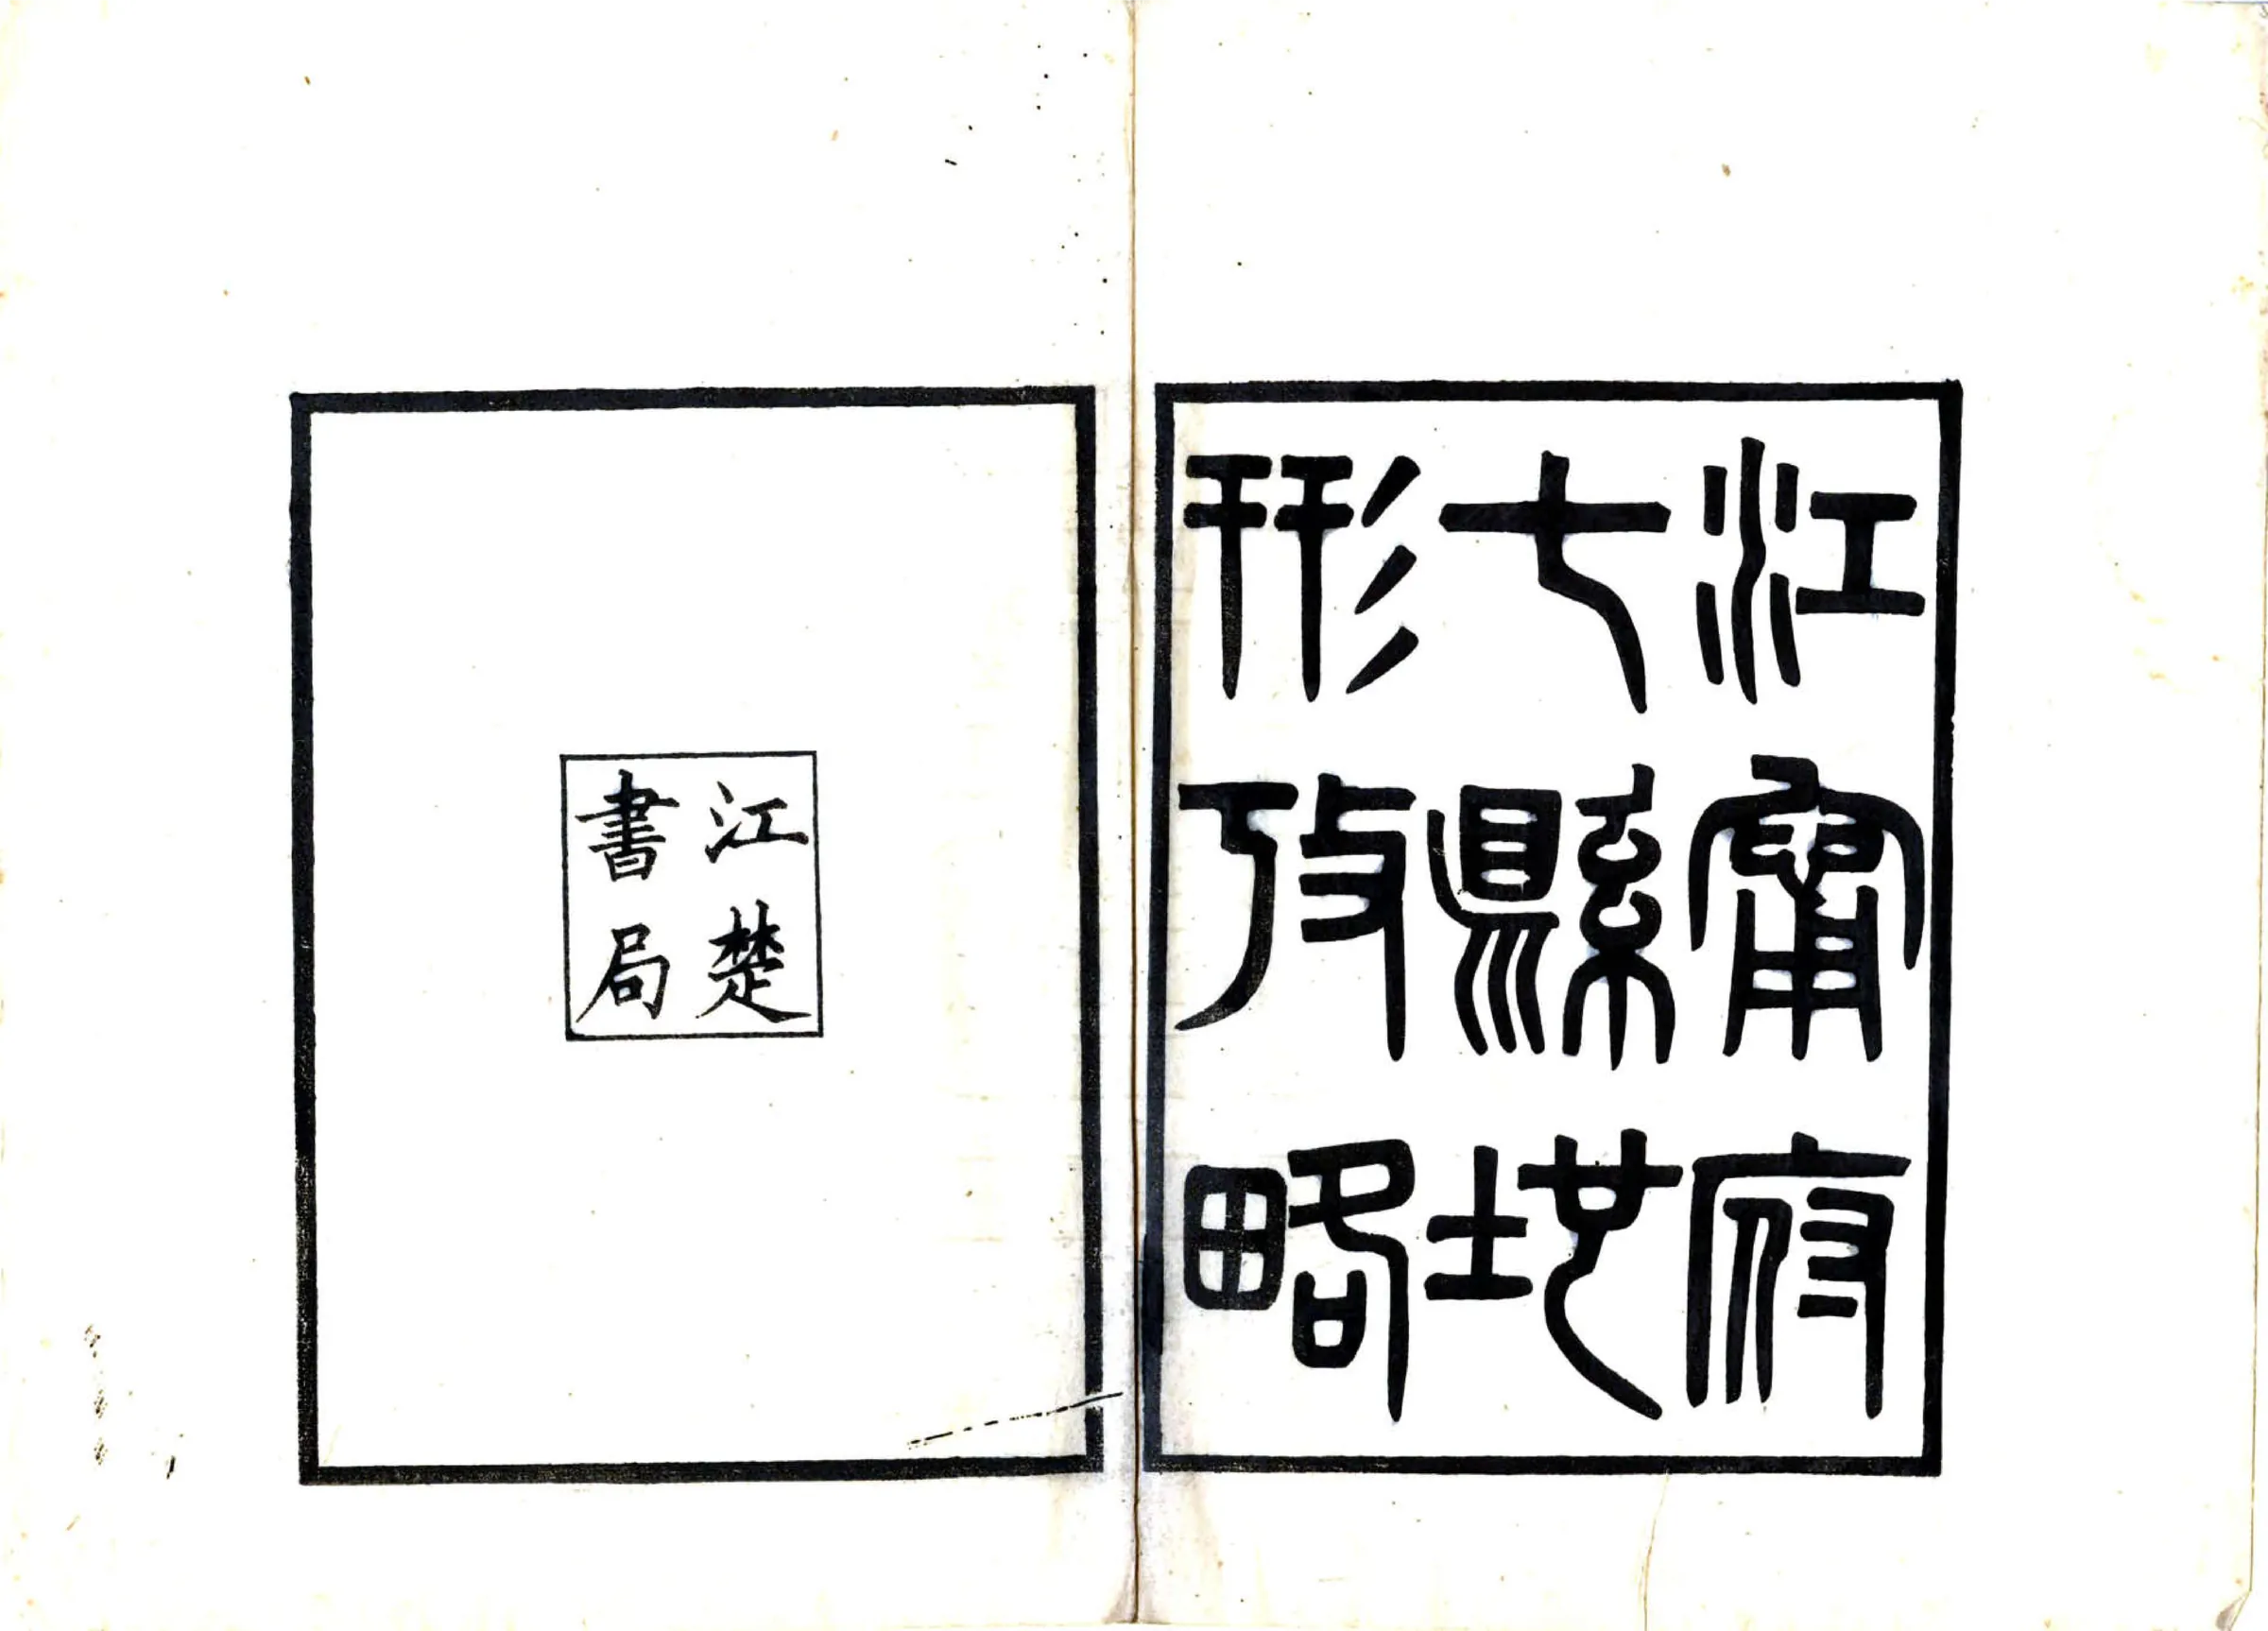 江甯府
七縣地
形攷略
江楚
書局